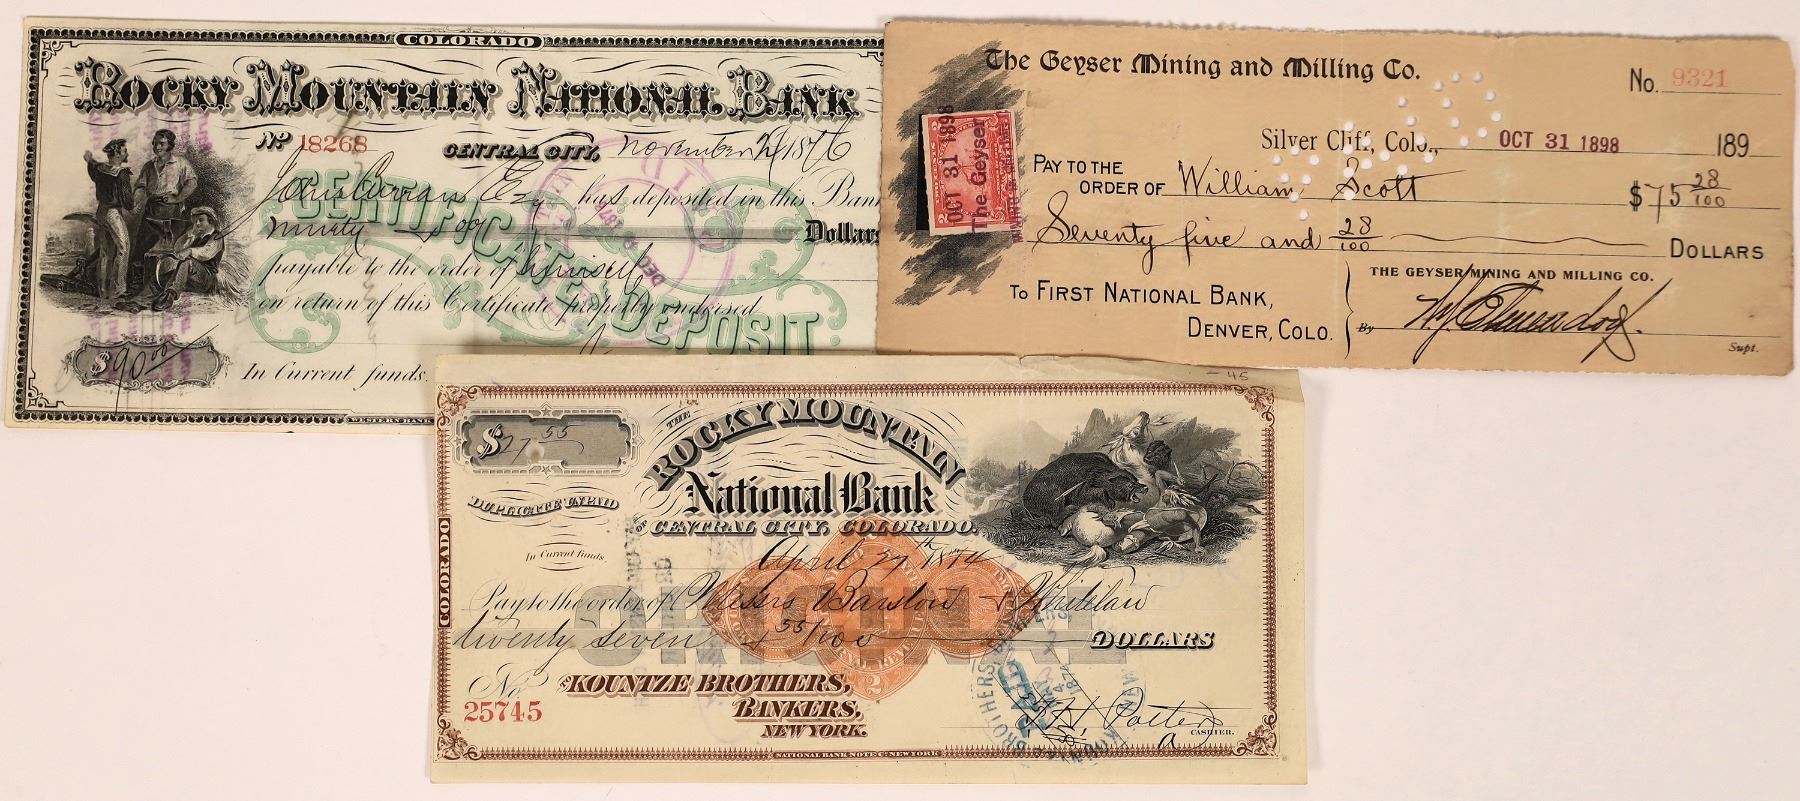 COLORADO
ROCKY MOUNTAIN NATIONAL BANK
No 18268
CENTRAL CITY, November 1876
John Curran Esq has deposited in this Bank
ninety 00/100 Dollars
payable to the order of himself
on return of this Certificate properly endorsed
CERTIFICATE OF DEPOSIT
$90.00
In Current funds.
WESTERN BANK
The Geyser Mining and Milling Co.
No. 9321
Silver Cliff, Colo., OCT 31 1898 189
OCT 31 1898
The Geyser
PAY TO THE
ORDER OF William Scott $75 28/100
Seventy five and 28/100 DOLLARS
THE GEYSER MINING AND MILLING CO.
TO FIRST NATIONAL BANK,
DENVER, COLO.
By
Supt.
-45
$27 55
THE
ROCKY MOUNTAIN
National Bank
OF CENTRAL CITY, COLORADO.
DUPLICATE UNPAID
In Current funds
COLORADO
April 27th 1874
Pay to the order of Messrs Barstow + Whitelaw
twenty seven + 55/100 DOLLARS
ORIGINAL
No
25745
TO KOUNTZE BROTHERS,
BANKERS,
NEW YORK.
PAID
MAY
1874
Potter
CASHIER.
NATIONAL BANK NOTE CO. NEW YORK